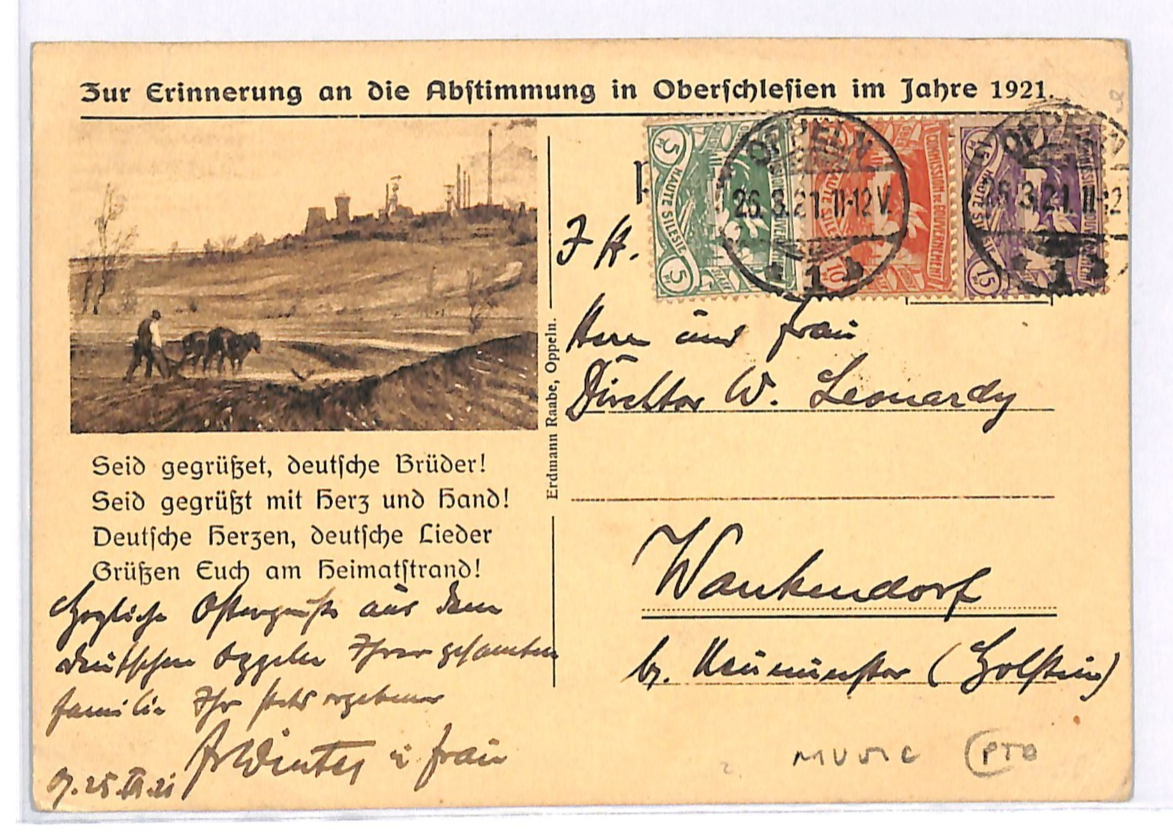 Zur Erinnerung an die Abstimmung in Oberschlesien im Jahre 1921.
5 HAUTE SILESIE 5
COMMISSION DE GOUVERNEMENT HAUTE SILESIE 10
15 HAUTE SILESIE 15
OPPELN
26.3.21. 11-12 V.
1
OPPELN
26.3.21. 11-12
1
Herrn und Frau
Direktor W. Leonardy
Erdmann Raabe, Oppeln.
Wankendorf
bz. Neumünster (Holstein)
Seid gegrüßet, deutsche Brüder!
Seid gegrüßt mit Herz und Hand!
Deutsche Herzen, deutsche Lieder
Grüßen Euch am Heimatstrand!
Herzliche Ostergrüße aus dem
deutschen Oppeln Ihrer gesamten
Familie Ihr stets ergebener
Winter u Frau
25.III.21
MUSIC (PTO